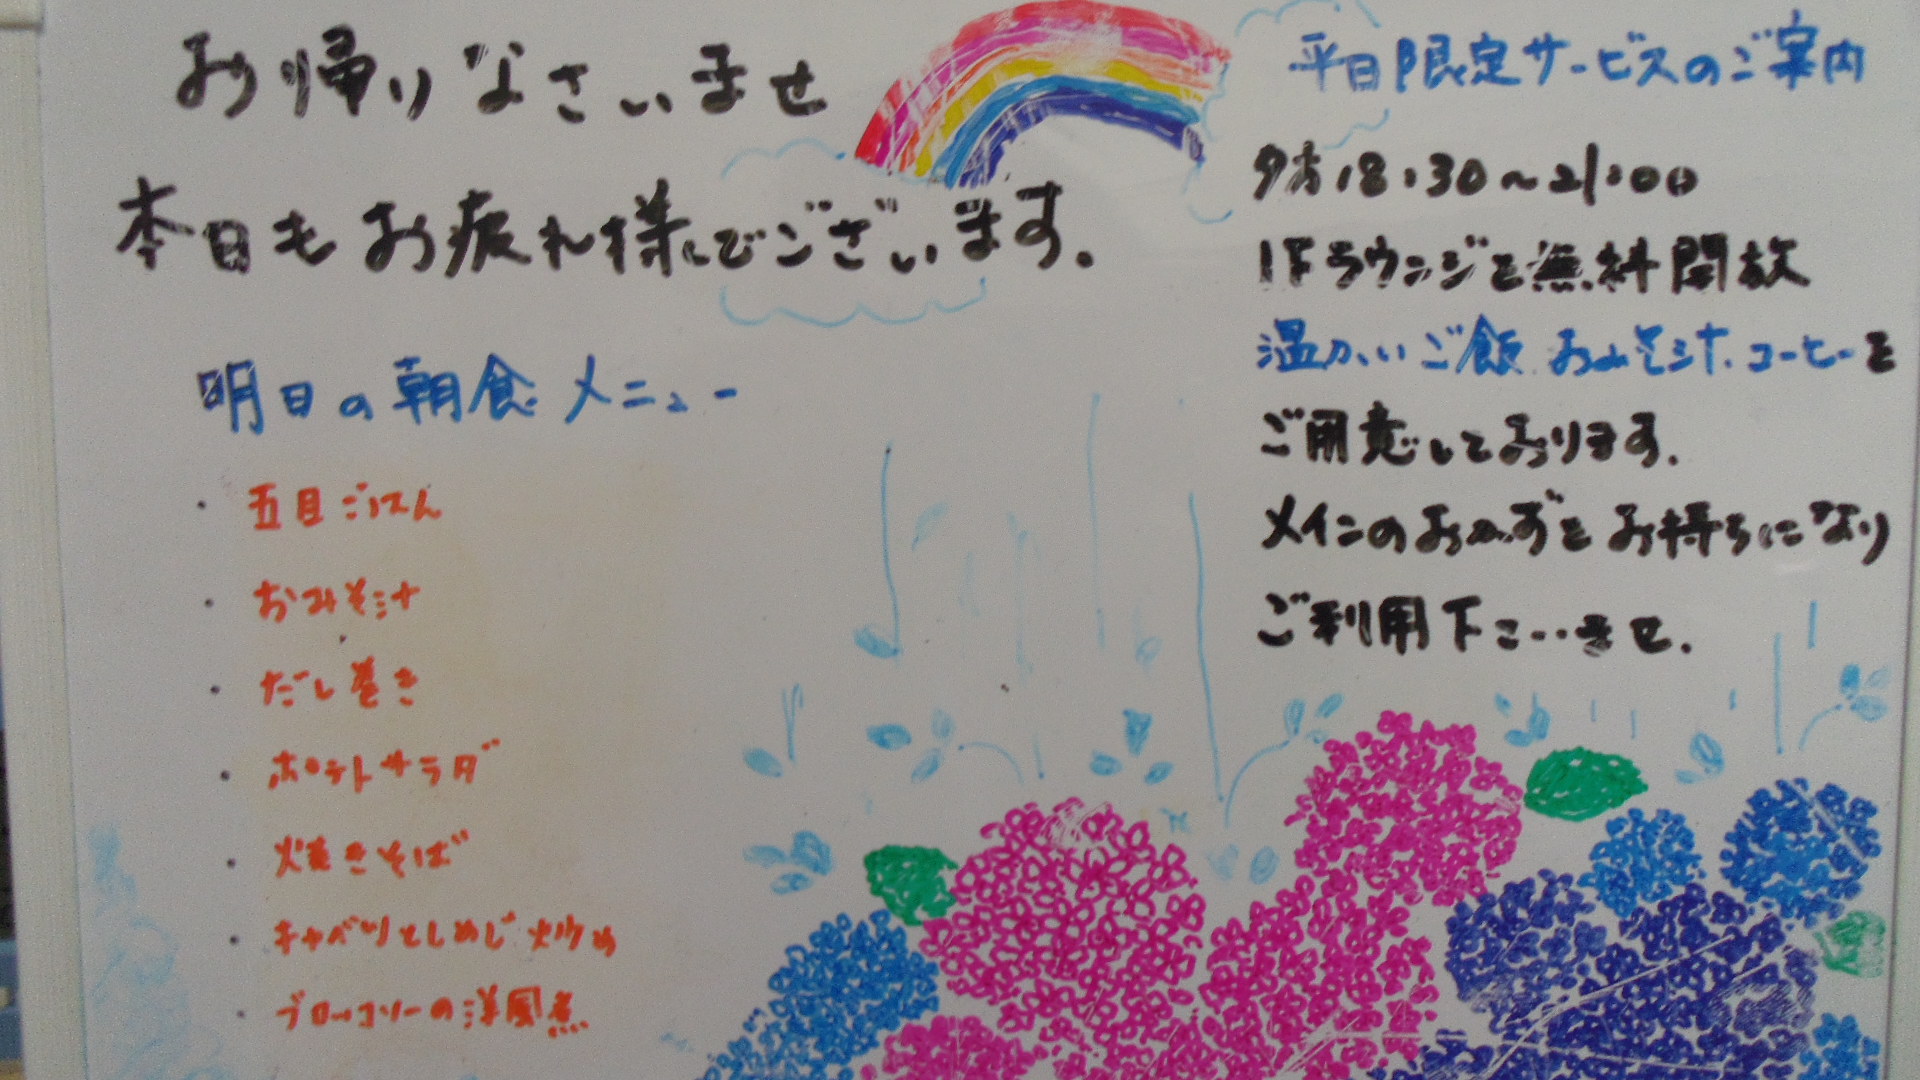 お帰りなさいませ
本日もお疲れ様でございます。
明日の朝食メニュー
・五目ごはん
・おみそ汁
・だし巻き
・ポテトサラダ
・焼きそば
・キャベツとしめじ炒め
・ブロッコリーの洋風煮
平日限定サービスのご案内
夕方18:30～21:00
1Fラウンジを無料開放
温かいご飯、おみそ汁、コーヒーを
ご用意しております。
メインのおかずをお持ちになり
ご利用下さいませ。